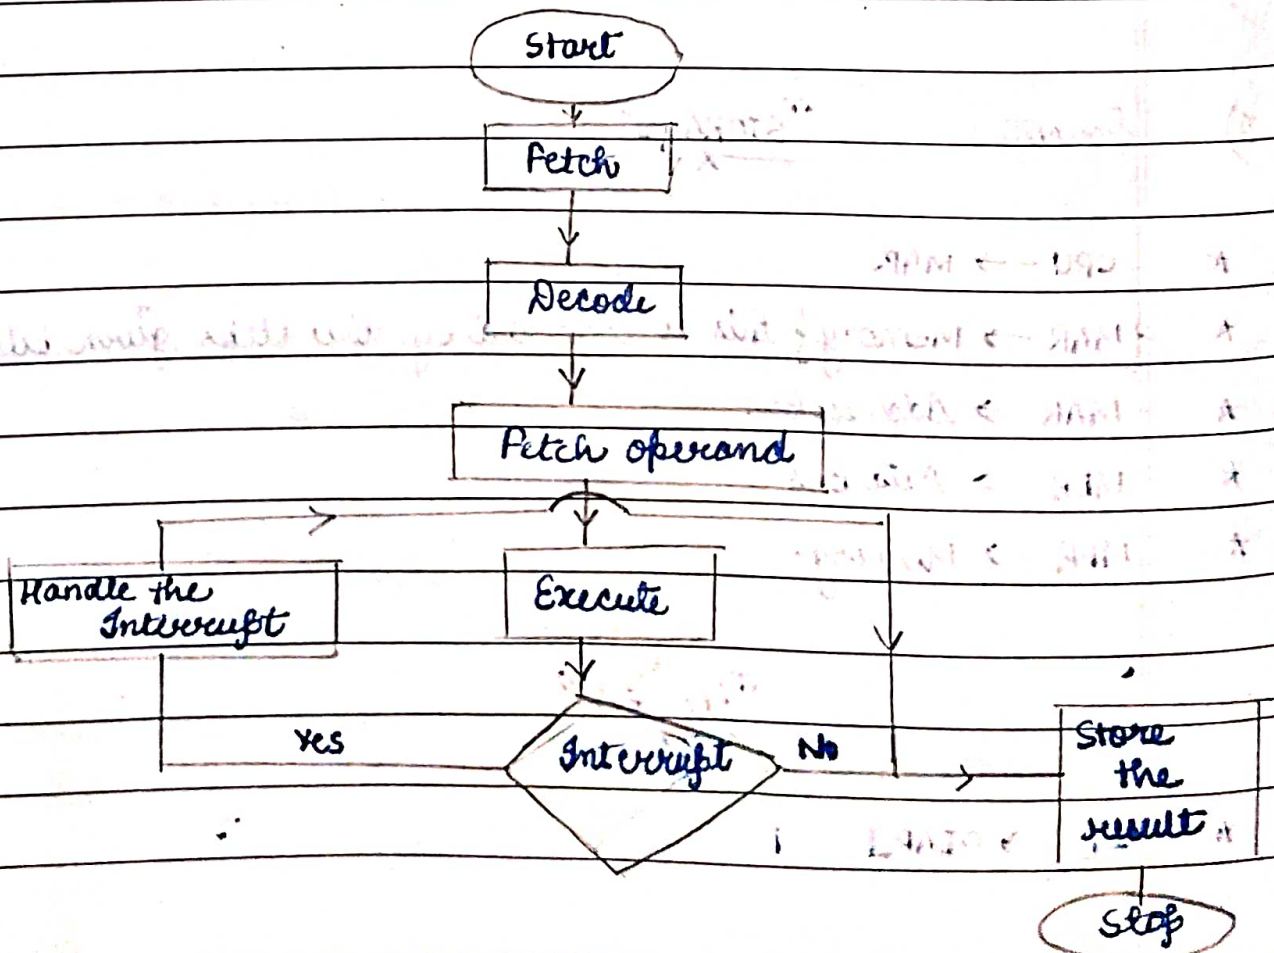 Start
Fetch
Decode
Fetch operand
Handle the
Interrupt
Execute
Yes
Interrupt
No
Store
the
result
Stop